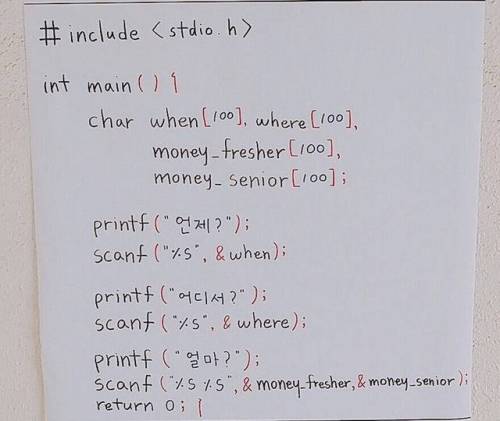 # include <stdio.h>
int main() {
char when[100], where[100],
money_fresher[100],
money_senior[100];
printf("언제?");
scanf("%s", &when);
printf("어디서?");
scanf("%s", &where);
printf("얼마?");
scanf("%s %s", &money_fresher, &money_senior);
return 0; {